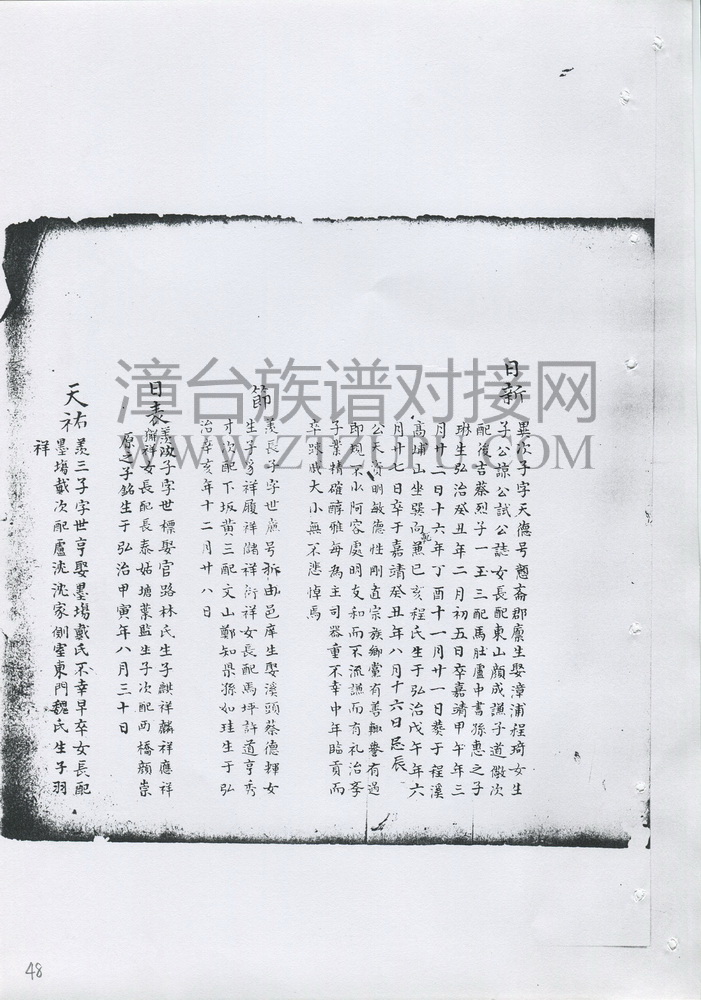 日新
異次子字天德号懇斎郡廩生娶漳浦程琦女生
子公諒公試公誌女長配東山顔成謙子道徵次
配後吉蔡烈子一玉三配馬肚盧中書孫惠之子
琳生弘治癸丑年二月初五日卒嘉靖甲午年三
月廿二日十六年丁酉十一月廿一日葬于程溪
高埔山坐巽向乾兼巳亥程氏生于弘治戊午年六
月廿七日卒于嘉靖癸丑年八月十六日忌辰
公天資明敏德性剛直宗族鄉黨有善輙譽有過
即規不少阿容處朋友和而不流謙而有礼治李
子業精確醇雅每為主司器重不幸中年臨貢而
卒踈戚大小無不悲悼焉
節
羨長子字世應号折由邑庠生娶溪頭蔡德輝女
生子多祥履祥儲祥衍祥女長配馬坪許道亨秀
才次配下坂黄三配文山鄭知県孫如珪生于弘
治辛亥年十二月廿八日
日表
羨次子字世標娶官路林氏生子麒祥麟祥應祥
獬祥女長配長泰姑塘葉監生子次配西橋顔崇
原之子銘生于弘治甲寅年八月三十日
天祐
羨三子字世亨娶墨塲戴氏不幸早卒女長配
墨塲戴次配盧沈沈家側室東門魏氏生子羽
祥
漳台族谱对接网
WWW.ZTZUPU.COM
48